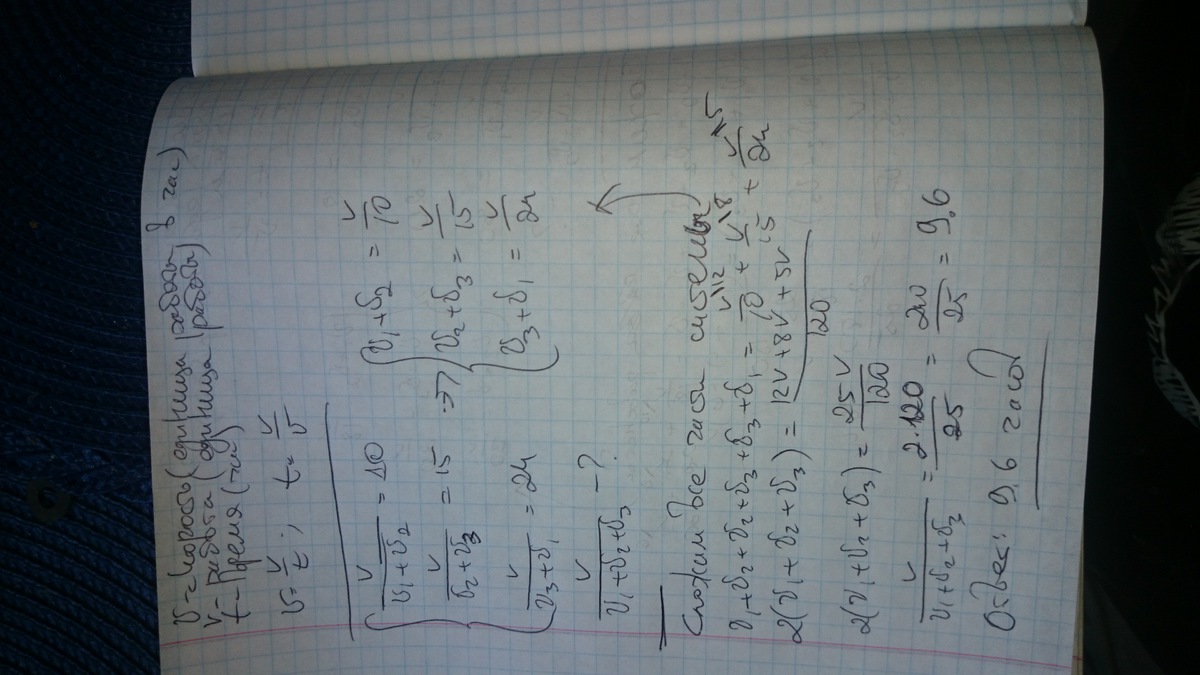 υ - скорость (единица работы в час)
V - работа (единица работы)
t - время (час)
υ = V/t ; t = V/υ
{ V/(υ₁+υ₂) = 10
V/(υ₂+υ₃) = 15 =>
V/(υ₃+υ₁) = 24
{ υ₁+υ₂ = V/10
υ₂+υ₃ = V/15
υ₃+υ₁ = V/24
V/(υ₁+υ₂+υ₃) - ?
Сложим все части системы
υ₁+υ₂+υ₂+υ₃+υ₃+υ₁ = V\12/10 + V\8/15 + V\5/24
2(υ₁+υ₂+υ₃) = (12V+8V+5V)/120
2(υ₁+υ₂+υ₃) = 25V/120
V/(υ₁+υ₂+υ₃) = 2·120/25 = 240/25 = 9.6
Ответ: 9,6 часов